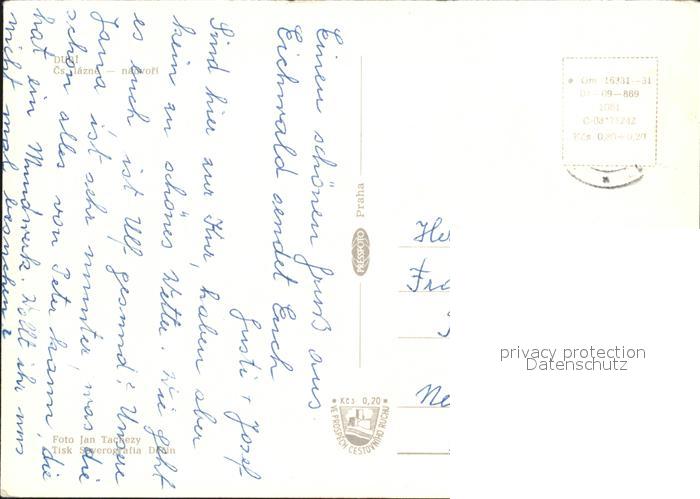 Einen schönen Gruß aus
Eichwald sendet Euch
Gusti + Josef
Sind hier zur Kur, haben aber
kein so schönes Wetter. Wie geht
es euch, ist Ulf gesund? Unsere
Jana ist sehr munter, was die
schon alles von Peter kann, die
hat ein Mundwerk. Wollt ihr uns
nicht mal besuchen?
DUBÍ
Čs. lázně — nádvoří
Foto Jan Tachezy
Tisk Severografia Děčín
Praha
PRESSFOTO
Kčs 0,20
VE PROSPĚCH CESTOVNÍHO RUCHU
Om 16331--31
01--09--869
1081
Kčs 0,80+0,20
He
Fra
Ne
privacy protection
Datenschutz